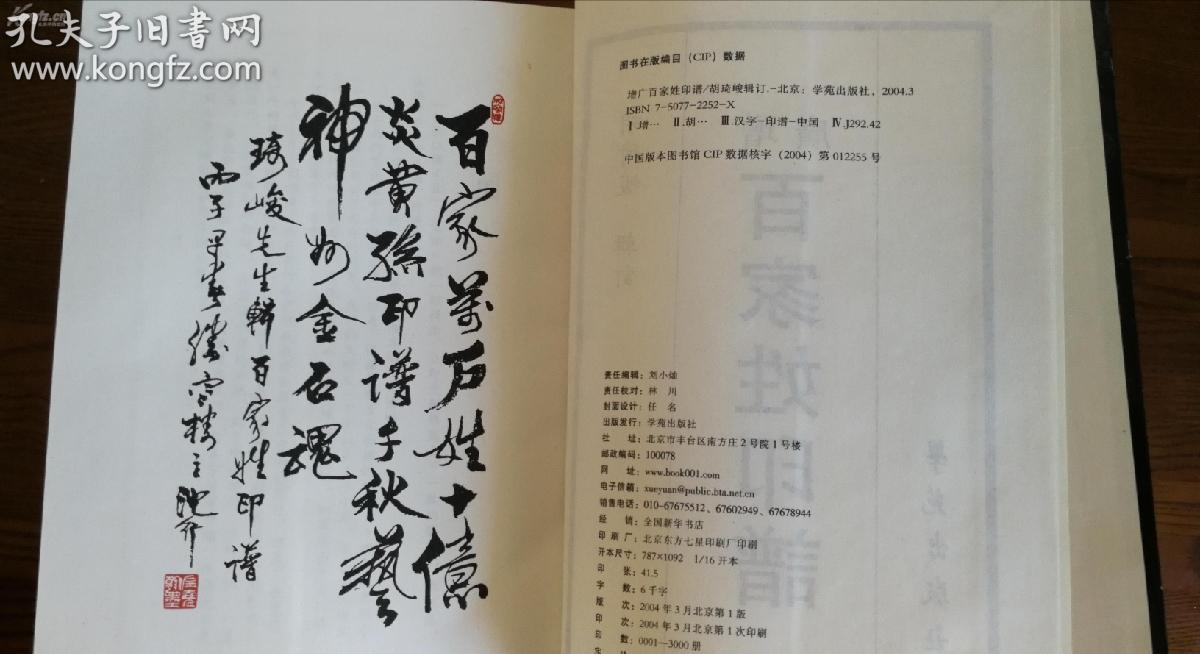 孔夫子旧书网
www.kongfz.com
百家萬户姓十億
炎黄孫印谱千秋藝
神州金石魂
琦峻先生輯百家姓印谱
丙子早春
图书在版编目（CIP）数据
增广百家姓印谱/胡琦峻辑订.-北京：学苑出版社，2004.3
ISBN 7-5077-2252-X
Ⅰ.增… Ⅱ.胡… Ⅲ.汉字-印谱-中国 Ⅳ.J292.42
中国版本图书馆CIP数据核字（2004）第012255号
责任编辑：刘小灿
责任校对：林 川
封面设计：任 名
出版发行：学苑出版社
社 址：北京市丰台区南方庄2号院1号楼
邮政编码：100078
网 址：www.book001.com
电子信箱：xueyuan@public.bta.net.cn
销售电话：010-67675512、67602949、67678944
经 销：全国新华书店
印 刷 厂：北京东方七星印刷厂印刷
开本尺寸：787×1092 1/16开本
印 张：41.5
字 数：6千字
版 次：2004年3月北京第1版
印 次：2004年3月北京第1次印刷
印 数：0001—3000册
百家姓印譜